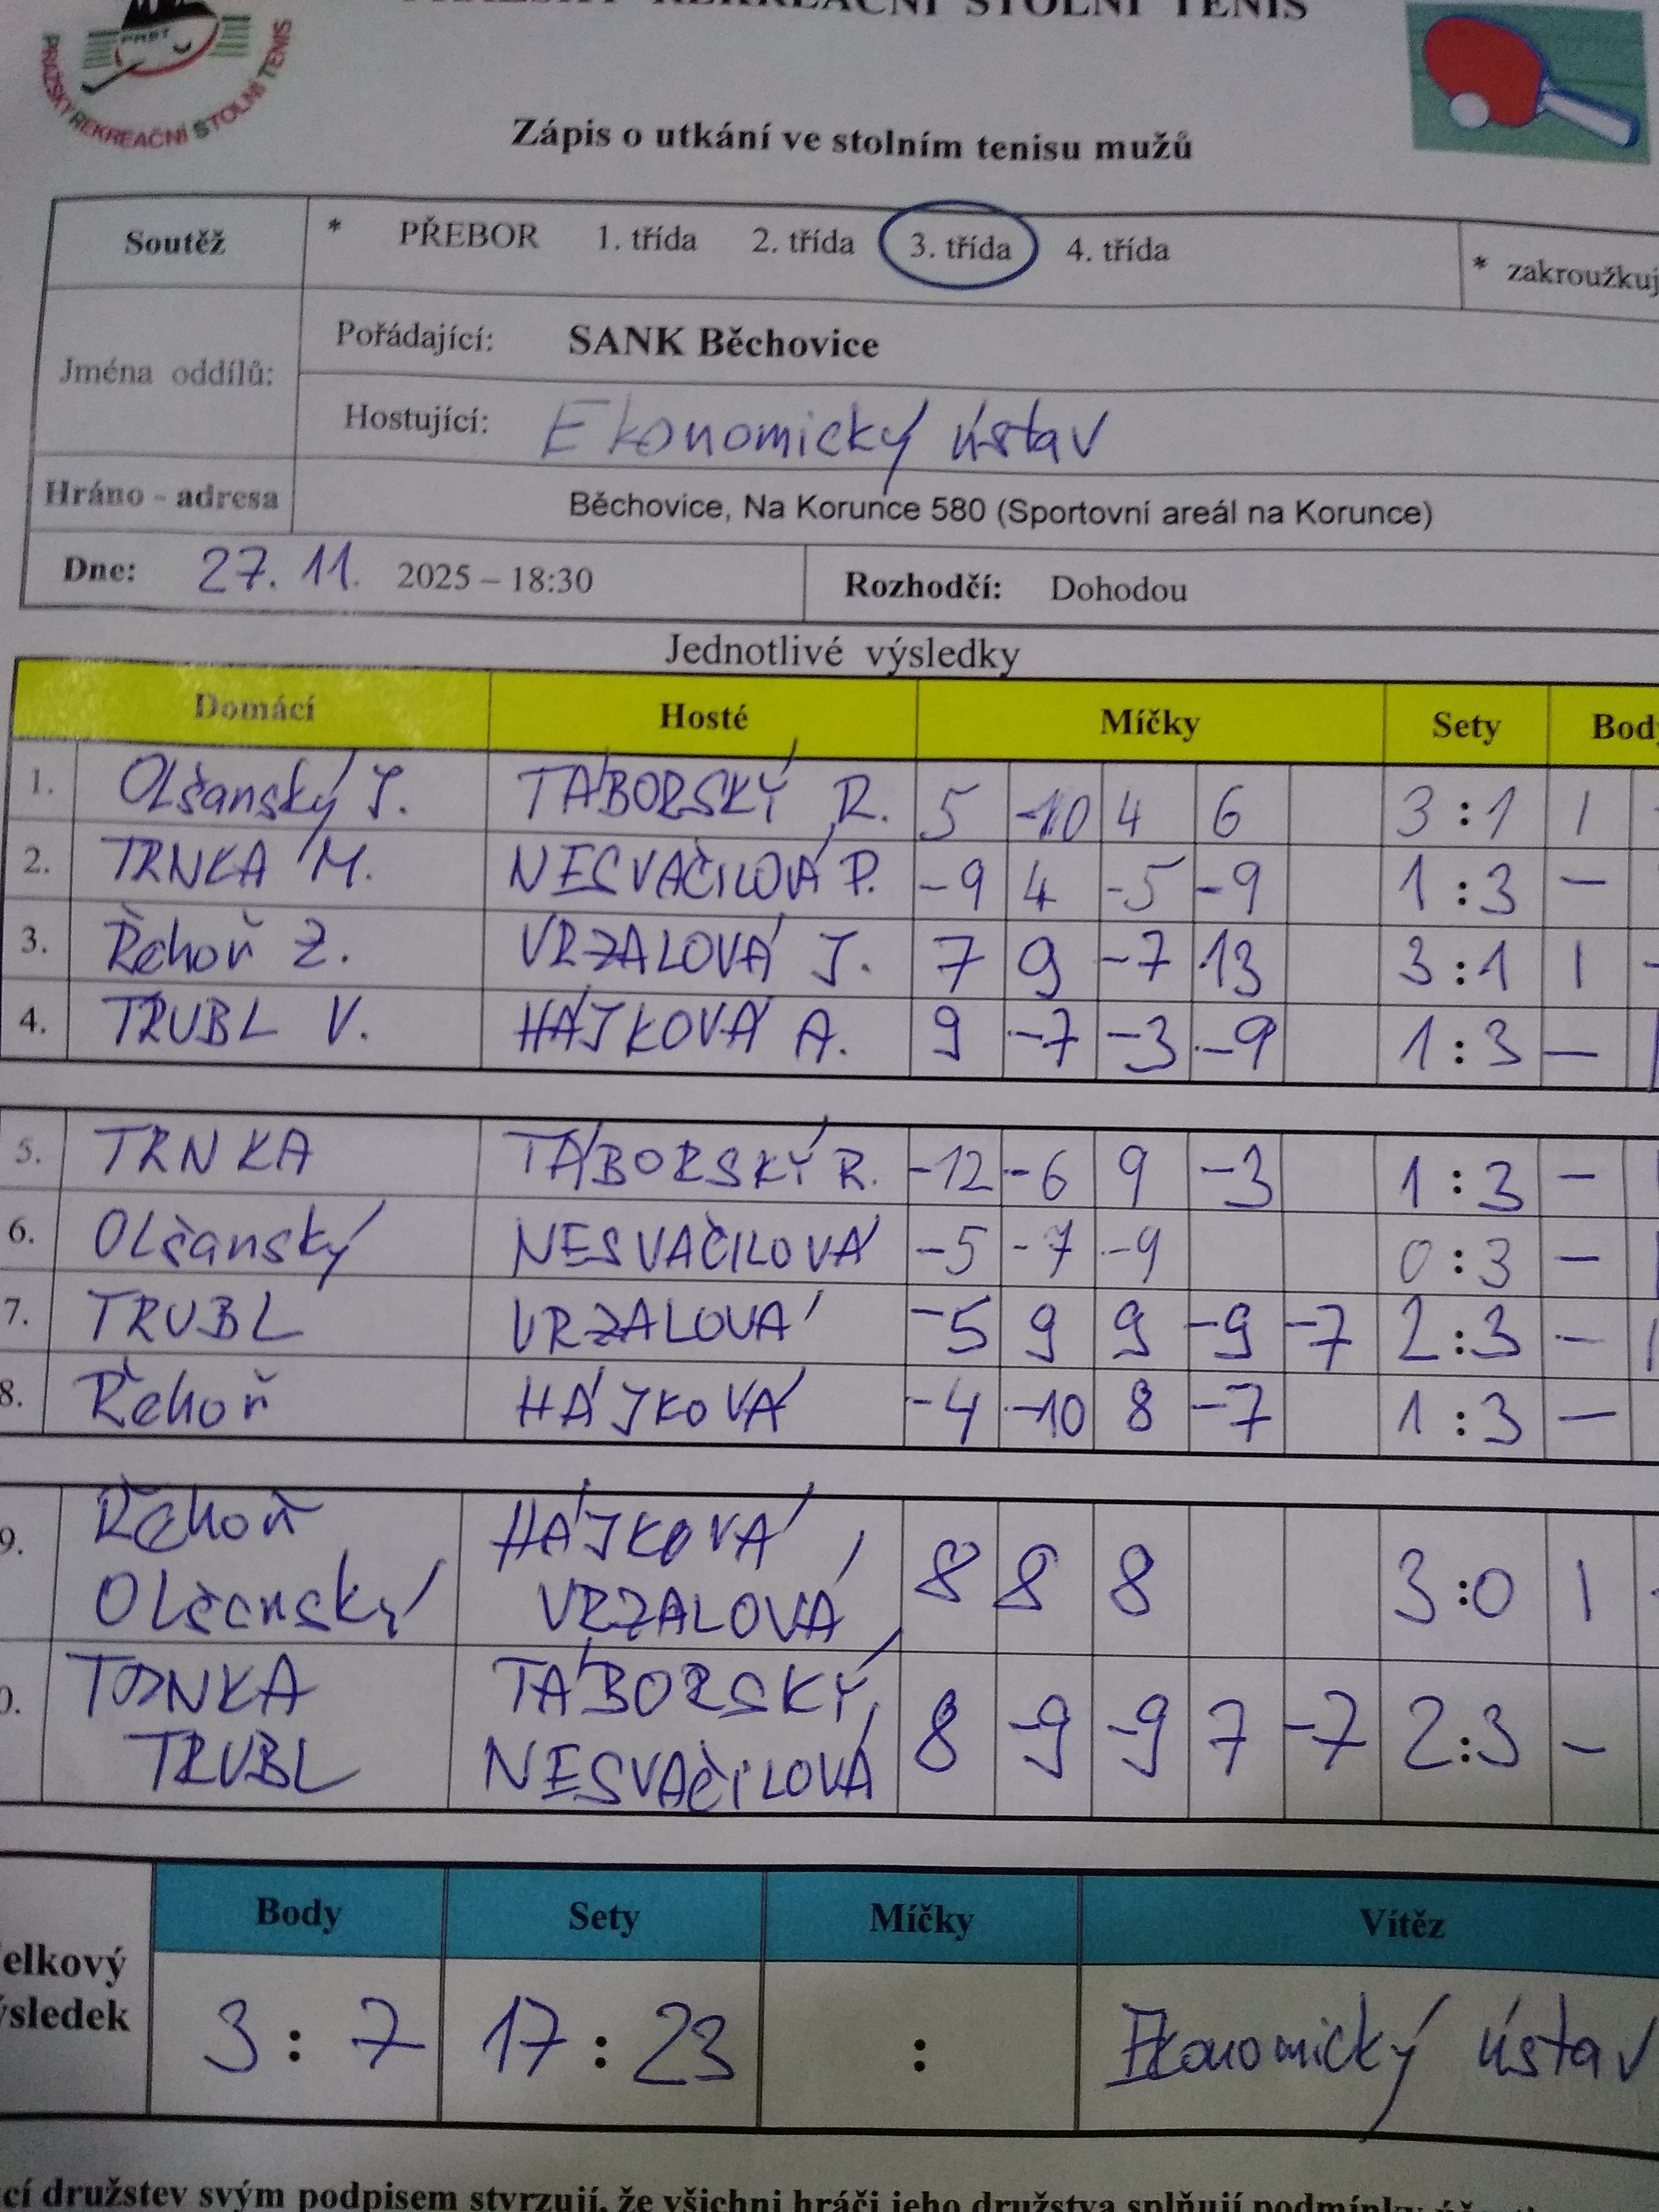 STOLNÍ TENIS
PRST
PRAŽSKÝ REKREAČNÍ STOLNÍ TENIS
Zápis o utkání ve stolním tenisu mužů
Soutěž * PŘEBOR 1. třída 2. třída 3. třída 4. třída * zakroužkuj
Jména oddílů:
Pořádající: SANK Běchovice
Hostující: Ekonomický ústav
Hráno - adresa Běchovice, Na Korunce 580 (Sportovní areál na Korunce)
Dne: 27. 11. 2025 – 18:30 Rozhodčí: Dohodou
Jednotlivé výsledky
Domácí Hosté Míčky Sety Body
1. Olšanský J. TÁBORSKÝ R. 5 -10 4 6 3 : 1 1
2. TRNKA M. NESVAČILOVÁ P. -9 4 -5 -9 1 : 3 –
3. Řehoř Z. VRZALOVÁ J. 7 9 -7 13 3 : 1 1
4. TRUBL V. HÁJKOVÁ A. 9 -7 -3 -9 1 : 3 –
5. TRNKA TÁBORSKÝ R. -12 -6 9 -3 1 : 3 –
6. Olšanský NESVAČILOVÁ -5 -7 -9 0 : 3 –
7. TRUBL VRZALOVÁ -5 9 9 -9 -7 2 : 3 –
8. Řehoř HÁJKOVÁ -4 -10 8 -7 1 : 3 –
9. Řehoř HÁJKOVÁ, 8 8 8 3 : 0 1
Olšanský VRZALOVÁ
TRNKA TÁBORSKÝ, 8 -9 -9 7 -7 2 : 3 –
TRUBL NESVAČILOVÁ
Body Sety Míčky Vítěz
elkový
ýsledek 3 : 7 17 : 23 : Ekonomický ústav
cí družstev svým podpisem stvrzují, že všichni hráči jeho družstva splňují podmínky